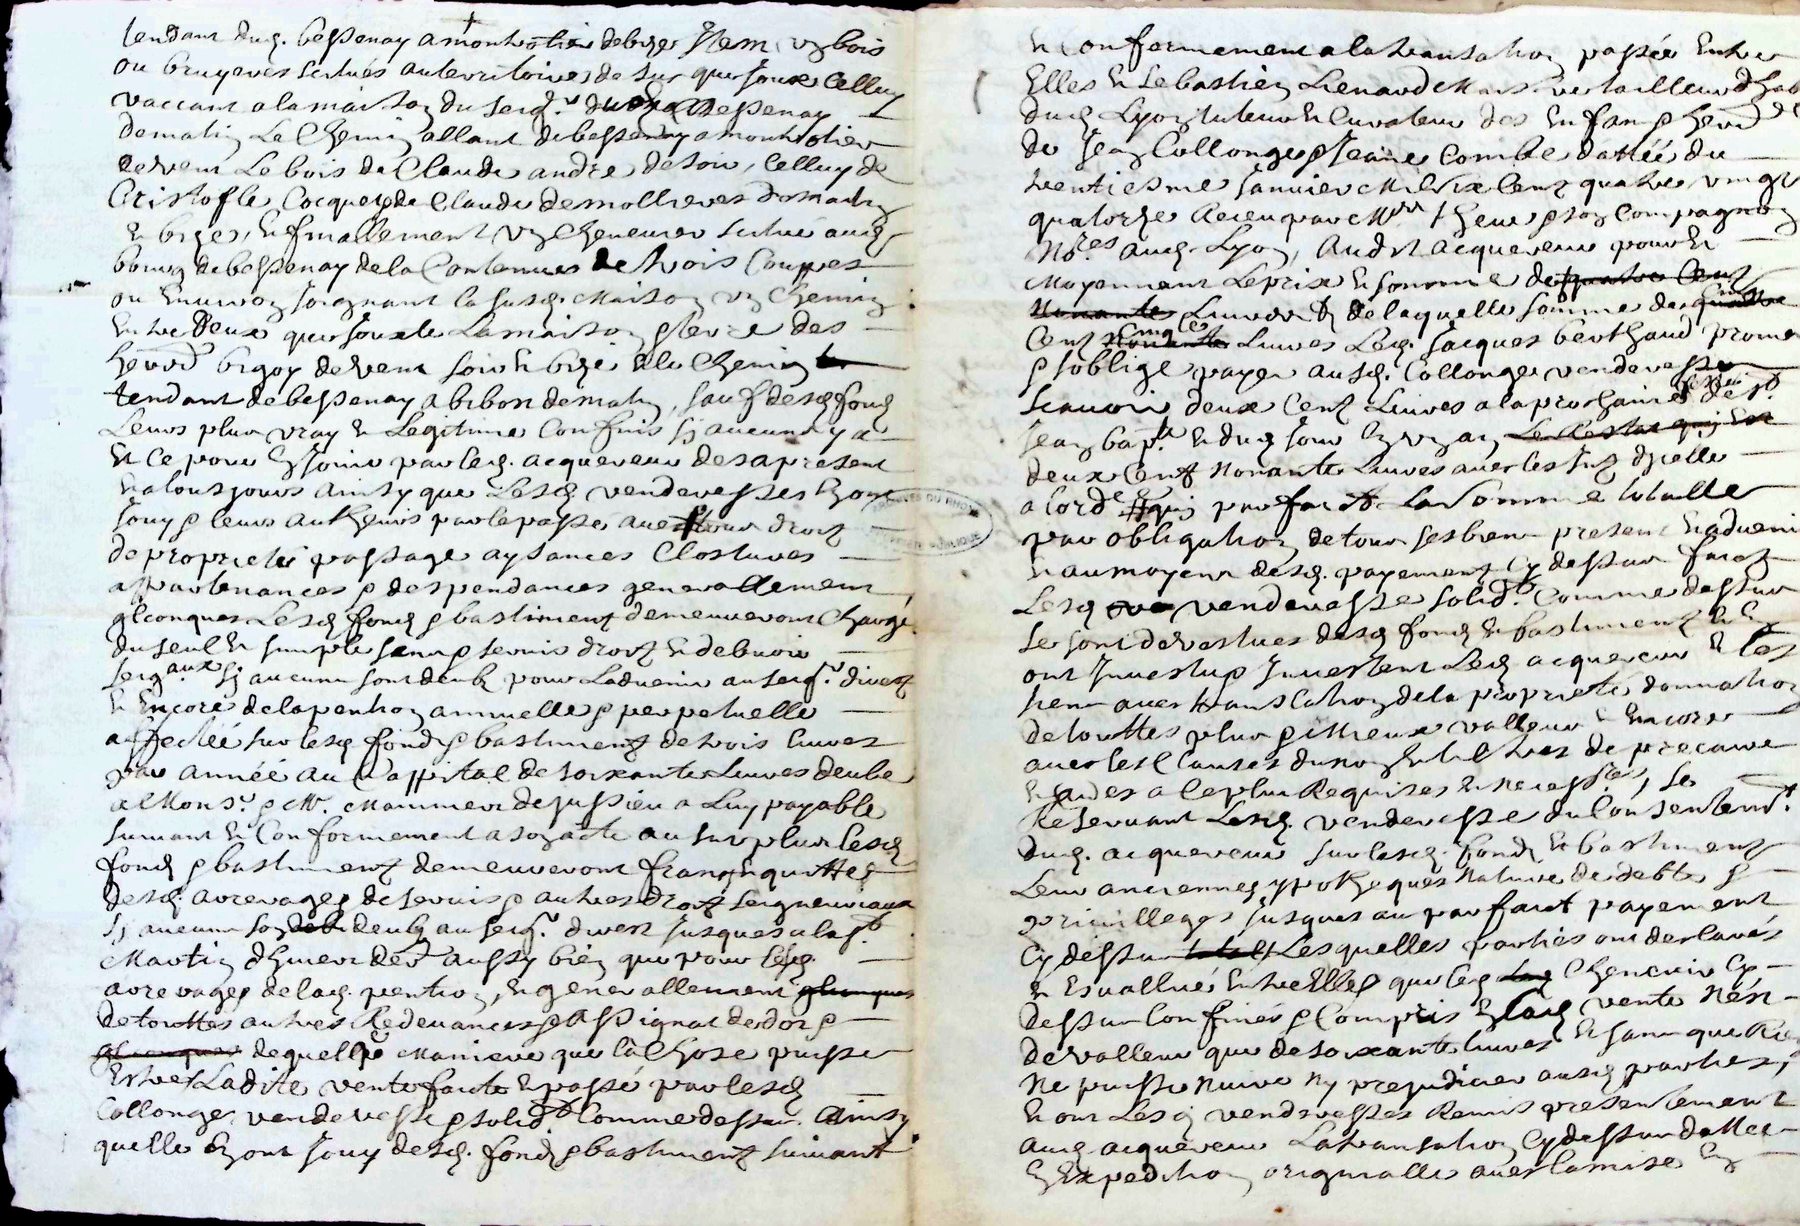 tendant dud. bessenay a montrotier de bize Item un bois
ou bruyeres scitués au territoire de sur que Joux Celluy
vaccant a la maison du seigr. dud. Bessenay
de matin Le Chemin allant de bessenay a montrotier
de vent Le bois de Claude andre de soir, Celluy de
Cristofle Cocquey de Claude desmollieres de matin
& bize, & finallement un Cheneuier scitué aud.
bourg de bessenay de la Contenue de trois Couppes
ou enuiron Joignant la susd. Maison un Chemin
entre deux que Jouxte La maison & terre des
heurs brigoy de vent soir & bize & le Chemin
tendant de bessenay a bibost de matin, sauf desd. fondz
Leurs plus vray & Legitime Confins sy aucuns y a
Et Ce pour en Jouir par led. acquereur des a present
& a tousjours ainsy que Lesd. venderesses en ont
Jouy & leurs autheurs par le passé auec tous droitz
de proprieté passage aysances Clostures
appartenances & despendances generallement
qlconques Lesd. fondz & bastimentz demeureront Chargé
du seul & simple sens & seruis droitz & debuoir
seigaux sy aucuns sont deubz pour Laduenir au seigr. direct
& Encore de la pention annuelle & perpetuelle
affectée sur lesd. fondz & bastimentz de trois liures
par année au Cappital de soixante Liures deube
a Monsr. & Mr. Mammert de Jussieu a Luy payable
suiuant & Conformement a son acte au surplus lesd.
fondz & bastimentz demeureront francz & quittes
desd. arrerages de seruis & autres droitz seigneuriaux
sy aucuns son deubz au seigr. direct Jusques a la st.
Martin dhiuer der. aussy bien que pour lesd.
arrerages de lad. pention, & generallement
de touttes autres Redeuances & Assignat de dot &
de quelle Maniere que la Chose puisse
Estre Ladite vente faite & passé par lesd.
Collonge venderesse & solid. Comme dessus. Ainsy
quelle en ont Jouy desd. fondz & bastimentz suiuant
& Conformement a la transation passée Entre
Elles & sebastien Lienard Mais. tailleur dhab
dud. Lyon tuteur & Curateur des Enfans & heurs de
de Jean Collonge & Jeanne Combe dattée du
ventiesme Januier Mil six Centz quatre vingt
quatorze Receu par Mrs & son Compagnon
Nores aud. Lyon, Audit acquereur pour &
Moyennant Le prix & somme de quatre Centz
Nonante Liures de laquelle somme de
Centz Liures Led. Jacques berthaud prome
& soblige payer ausd. Collonge venderesse
scauoir deux Centz Liures a la prochaine feste de st.
Jean bapte. & dud. Jour en un an
deux Centz Nonante Liures auec les Intz dicelle
parfait La Somme totalle
par obligation de tous ses biens present & aduenir
& au moyens desd. payementz Cy dessus faictz
Lesd. venderesse solid. Comme dessus
se sont devestues desd. fondz & bastimentz & En
ont Inuestu & Inuestent Led. acquereur & les
siens auec translation de la proprieté donnation
de touttes plus & mieux valleur & encore
auec les Clauses du nom & tiltres de precaire
& aides a Ce plus Requises & necessres, se
Reseruant Lesd. venderesse du Consentemt.
dud. acquereur sur lesd. fondz & bastimentz
Leur anciennes ypotheques Nature de debte &
priuilleges Jusques au parfaict payement
Cy dessus Lesquelles parties ont declarés
& Esuallué Entre Elles que led. Cheneuier Cy
dessus Confinés & Compris En lad. vente Nest
de valleur que de soixante liures & sans que Rien
Ne puisse nuire ny prejudicier ausd. parties,
& ont Lesd. venderesses Remis presentement
aud. acquereur La transation Cy dessus dattée
En Expedition originalle auec lamise En